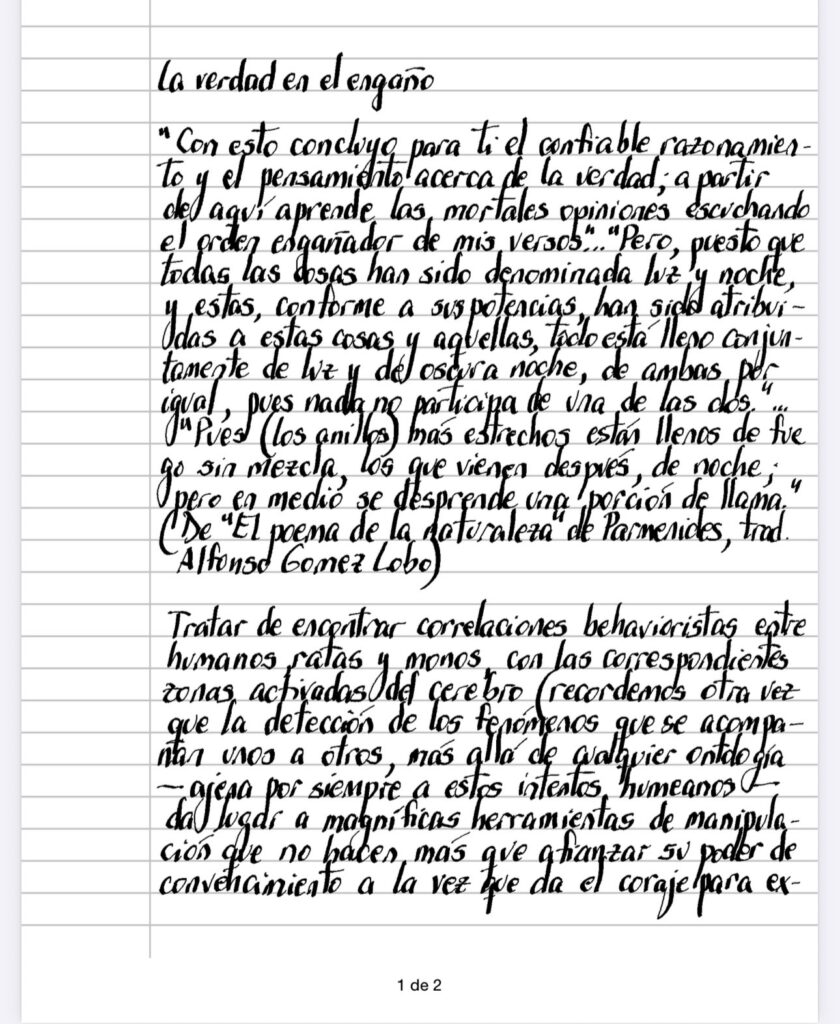 La verdad en el engaño
"Con esto concluyo para ti el confiable razonamien-
to y el pensamiento acerca de la verdad; a partir
de aquí aprende las mortales opiniones escuchando
el orden engañador de mis versos"..."Pero, puesto que
todas las cosas han sido denominada luz y noche,
y estas, conforme a sus potencias, han sido atribui-
das a estas cosas y aquellas, todo está lleno conjun-
tamente de luz y de oscura noche, de ambas por
igual, pues nada no participa de una de las dos."...
"Pues (los anillos) más estrechos están llenos de fue
go sin mezcla, los que vienen después, de noche;
pero en medio se desprende una porción de llama."
(De "El poema de la naturaleza" de Parmenides, trad.
Alfonso Gomez Lobo)
Tratar de encontrar correlaciones behavioristas entre
humanos, ratas y monos, con las correspondientes
zonas activadas del cerebro (recordemos otra vez
que la detección de los fenómenos que se acompa-
ñan unos a otros, más allá de cualquier ontología
—ajena por siempre a estos intentos humeanos—
da lugar a magníficas herramientas de manipula-
ción que no hacen más que afianzar su poder de
convencimiento a la vez que da el coraje para ex-
1 de 2